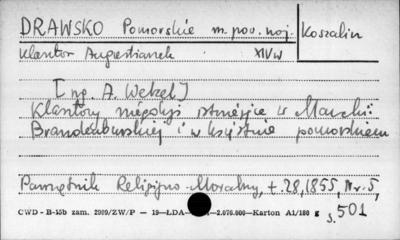 DRAWSKO Pomorskie m. pow. woj. Koszalin
Klasztor Augustianek XIV w
[np. A. Wekel]
Klasztory niegdyś istniejące w Marchii
Brandenburskiej i w księstwie pomorskiem
Pamiętnik Religijno-Moralny, t. 28, 1855, Nr. 5,
s. 501
CWD - B-15b zam. 2909/ZW/P — 19—ŁDA— —2.070.000—Karton A1/180 g